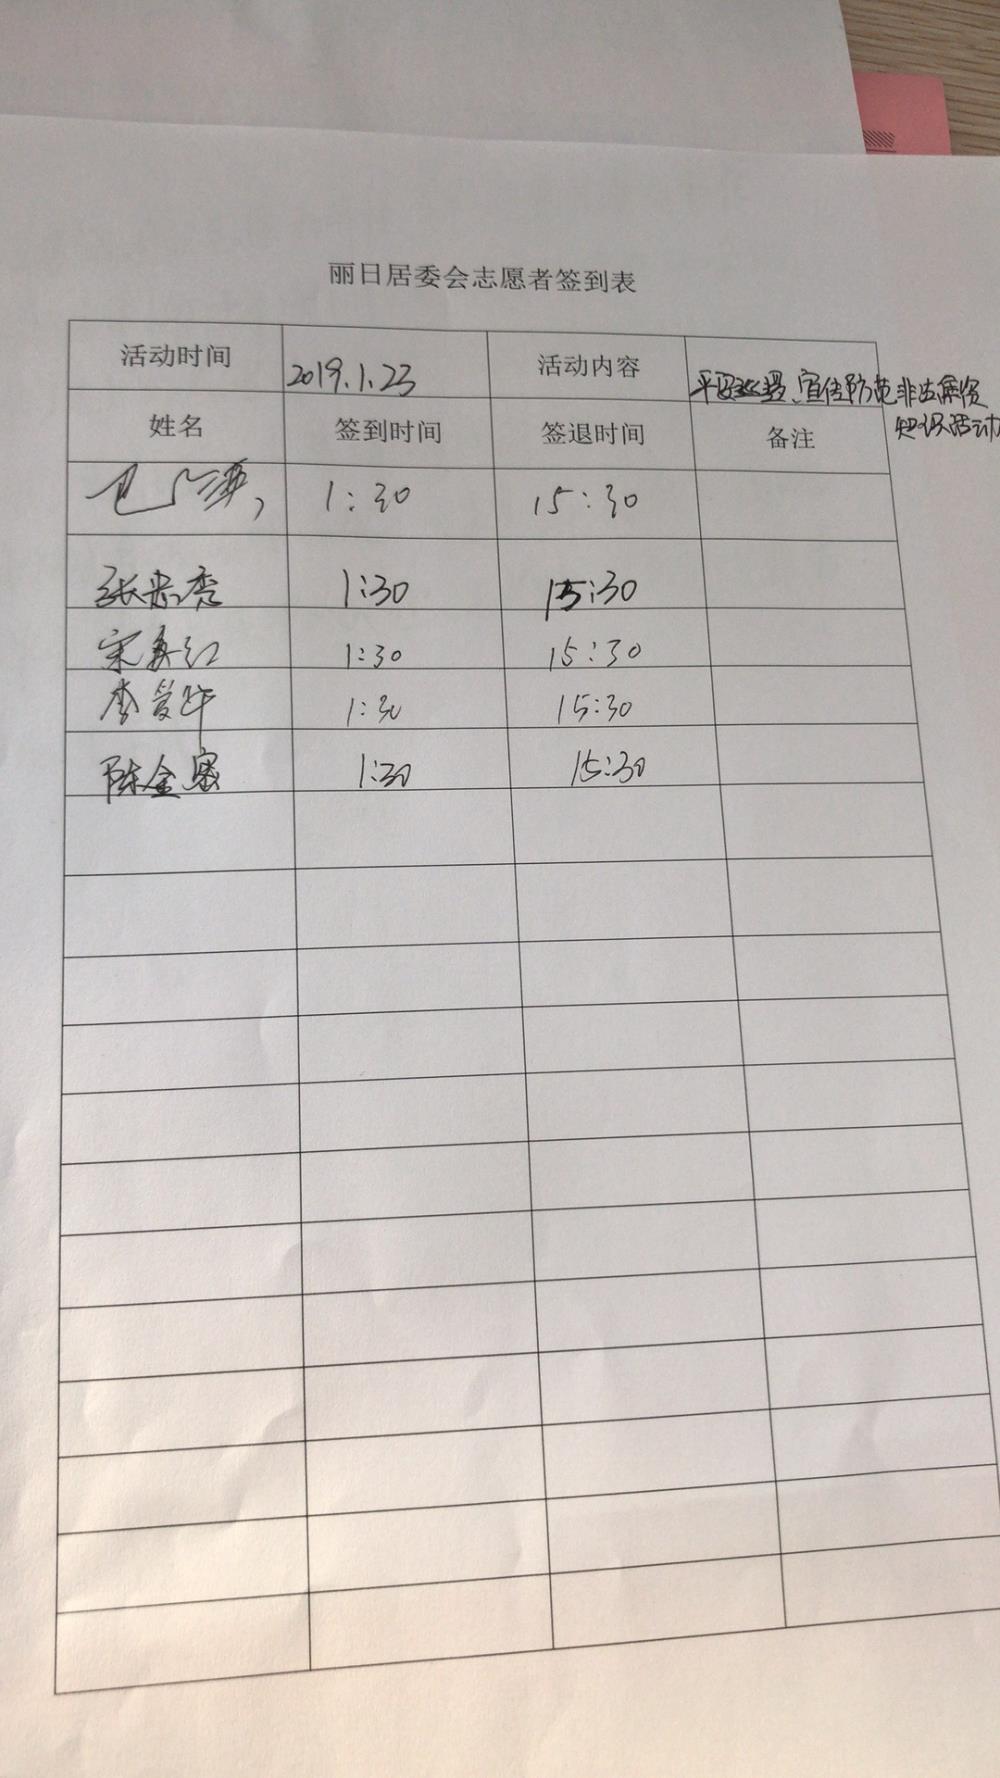 丽日居委会志愿者签到表
活动时间 2019.1.23 活动内容 平安巡逻、宣传防范非法集资
知识活动
姓名 签到时间 签退时间 备注
1:30 15:30
张惠秀 1:30 15:30
宋 红 1:30 15:30
李爱华 1:30 15:30
陈金 1:30 15:30